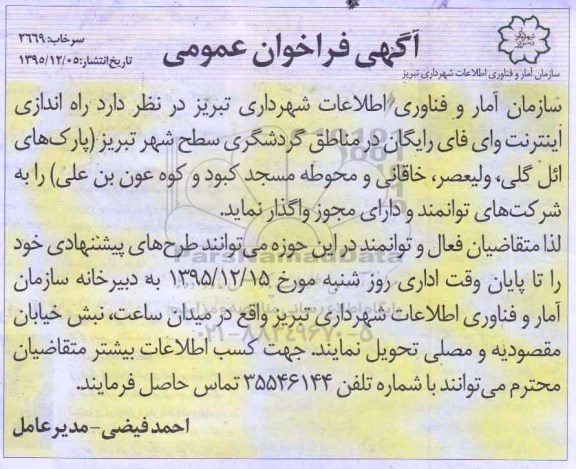 سرخاب: ۲۶۶۹
تاریخ انتشار: ۱۳۹۵/۱۲/۰۵
آگهی فراخوان عمومی
سازمان آمار و فناوری اطلاعات شهرداری تبریز
سازمان آمار و فناوری اطلاعات شهرداری تبریز در نظر دارد راه اندازی
اینترنت وای فای رایگان در مناطق گردشگری سطح شهر تبریز (پارک‌های
ائل گلی، ولیعصر، خاقانی و محوطه مسجد کبود و کوه عون بن علی) را به
شرکت‌های توانمند و دارای مجوز واگذار نماید.
لذا متقاضیان فعال و توانمند در این حوزه می‌توانند طرح‌های پیشنهادی خود
را تا پایان وقت اداری روز شنبه مورخ ۱۳۹۵/۱۲/۱۵ به دبیرخانه سازمان
آمار و فناوری اطلاعات شهرداری تبریز واقع در میدان ساعت، نبش خیابان
مقصودیه و مصلی تحویل نمایند. جهت کسب اطلاعات بیشتر متقاضیان
محترم می‌توانند با شماره تلفن ۳۵۵۴۶۱۴۴ تماس حاصل فرمایند.
احمد فیضی-مدیر عامل
ParsNamadData
۰۲۱-۸۸۳۴۹۶۷۰-۵